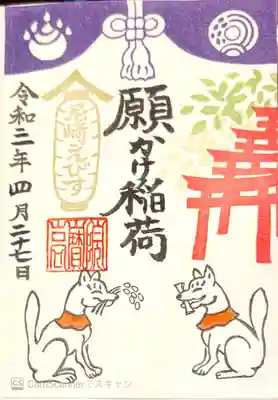 願かけ稲荷
尼崎えびす
令和二年四月二十七日
CS CamScannerでスキャン